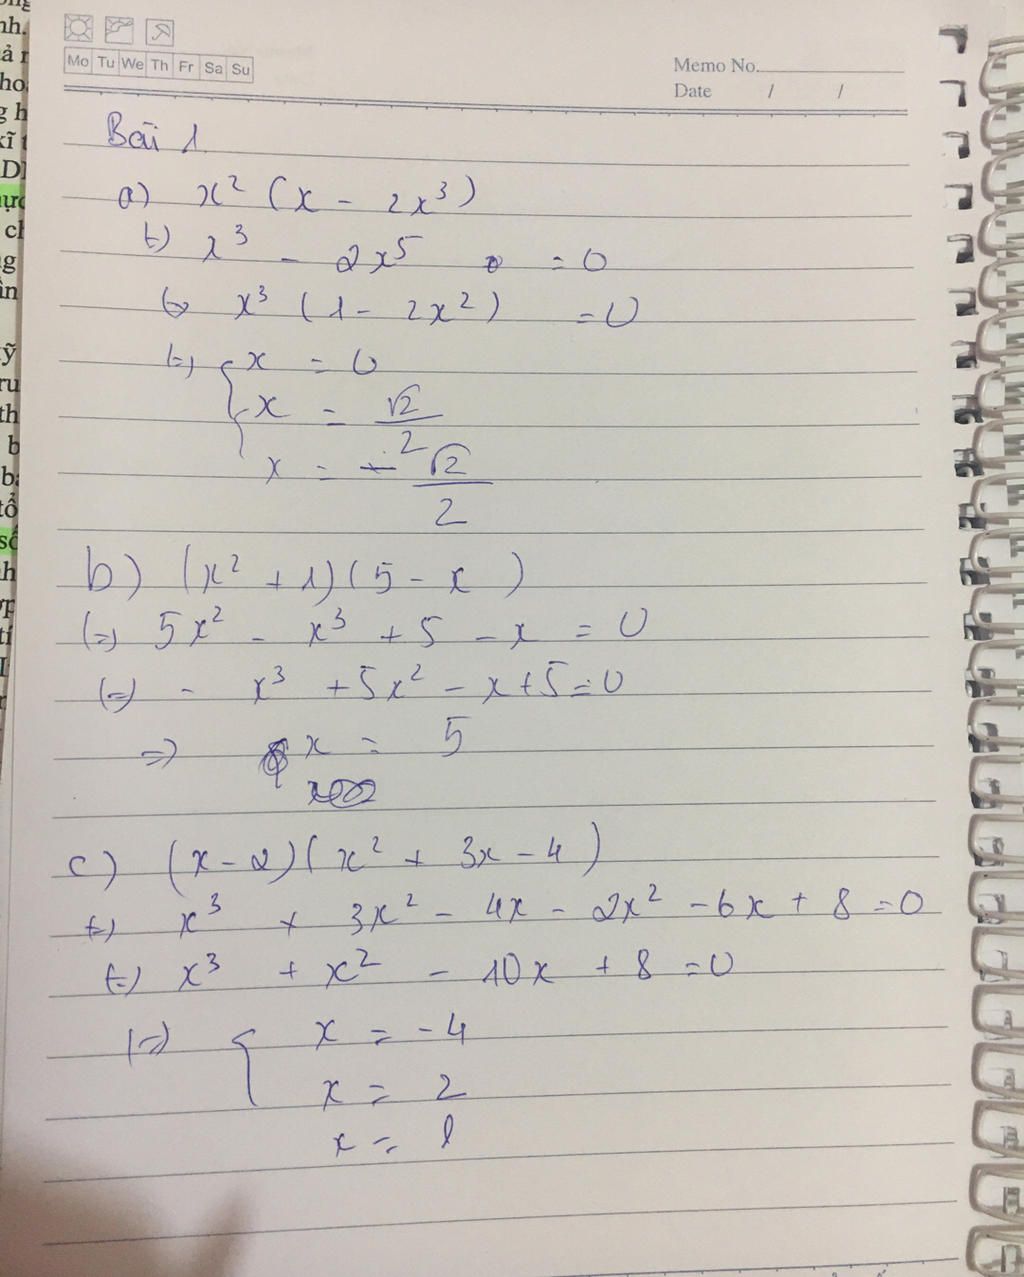 Mo Tu We Th Fr Sa Su
Memo No.
Date / /
Bài 1
a) x² (x - 2x³)
(=) x³ - 2x⁵ = 0
(=) x³ (1 - 2x²) = 0
(=) { x = 0
x = √2/2
x = -√2/2
b) (x² + 1)(5 - x)
(=) 5x² - x³ + 5 - x = 0
(=) - x³ + 5x² - x + 5 = 0
=) x = 5
c) (x - 2)(x² + 3x - 4)
(=) x³ + 3x² - 4x - 2x² - 6x + 8 = 0
(=) x³ + x² - 10x + 8 = 0
(=) { x = -4
x = 2
x = 1